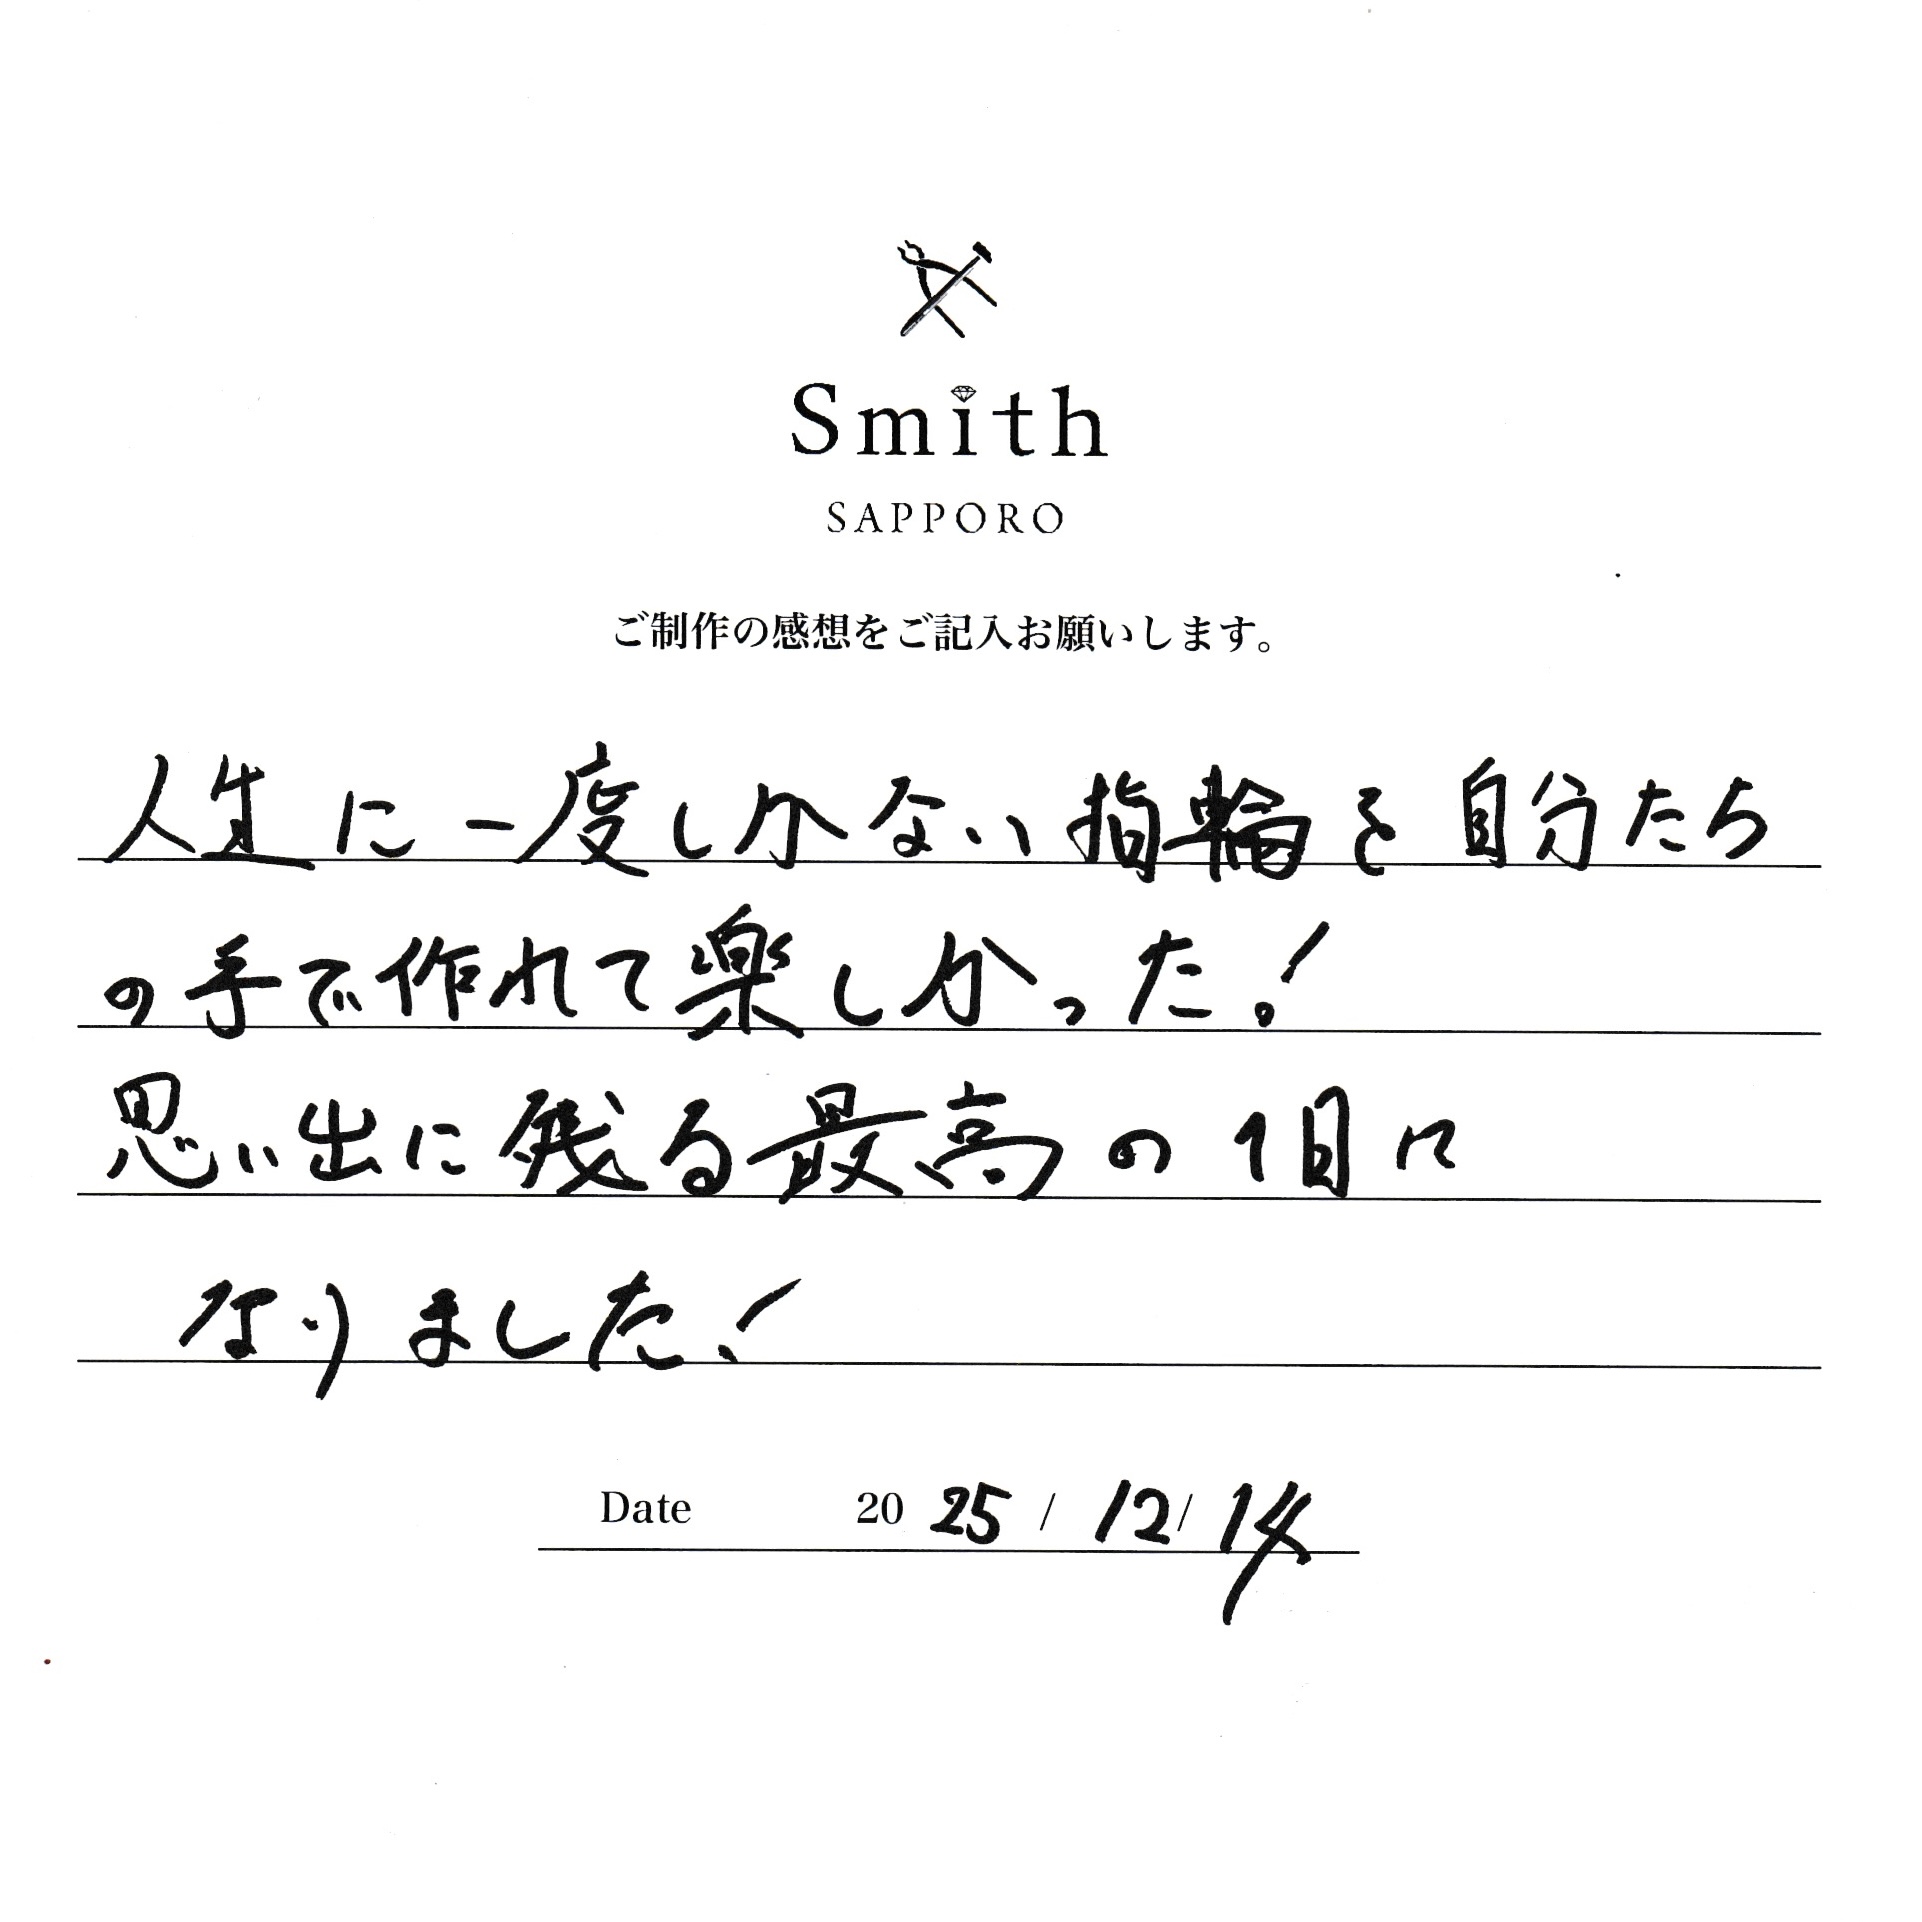 Smith
SAPPORO
ご制作の感想をご記入お願いします。
人生に一度しかない指輪を自分たち
の手で作れて楽しかった!
思い出に残る最高の1日に
なりました!
Date 2025 / 12 / 14